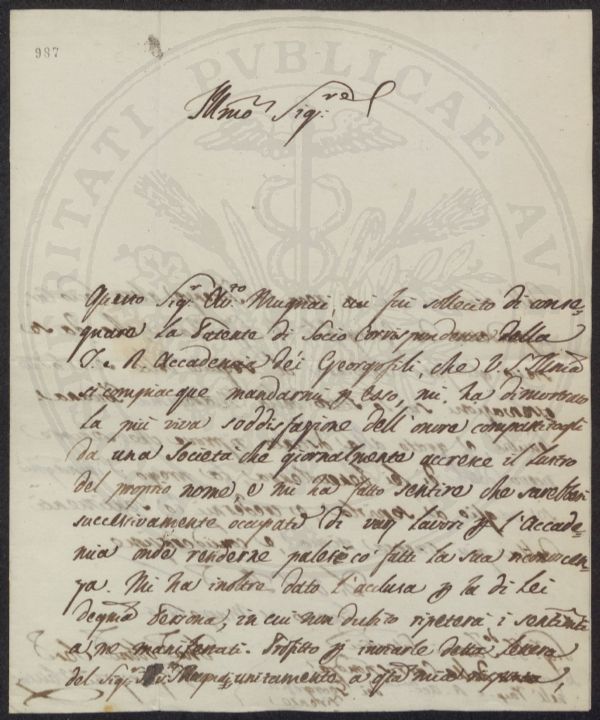 987
PROSPERITATI PUBLICAE AU
Illmo Sigre
Questo Sigr Mugnai, cui fui sollecito di conse-
gnare la Patente di Socio Corrispondente della
I. e R. Accademia dei Georgofili, che V. S. Illma
si compiacque mandarmi p esso, mi ha dimostrato
la più viva soddisfazione dell'onore compartitogli
da una Società che giornalmente accresce il lustro
del proprio nome, e mi ha fatto sentire che sarebbesi
successivamente occupato di varj lavori p l'Accade-
mia onde renderne palese co' fatti la sua riconoscen-
za. Mi ha inoltre dato l'acclusa p la di Lei
degnma Persona, in cui non dubito ripeterà i sentimti
a me manifestati. Profitto p inviarle della lettera
del Sigr unitamente a qta mia